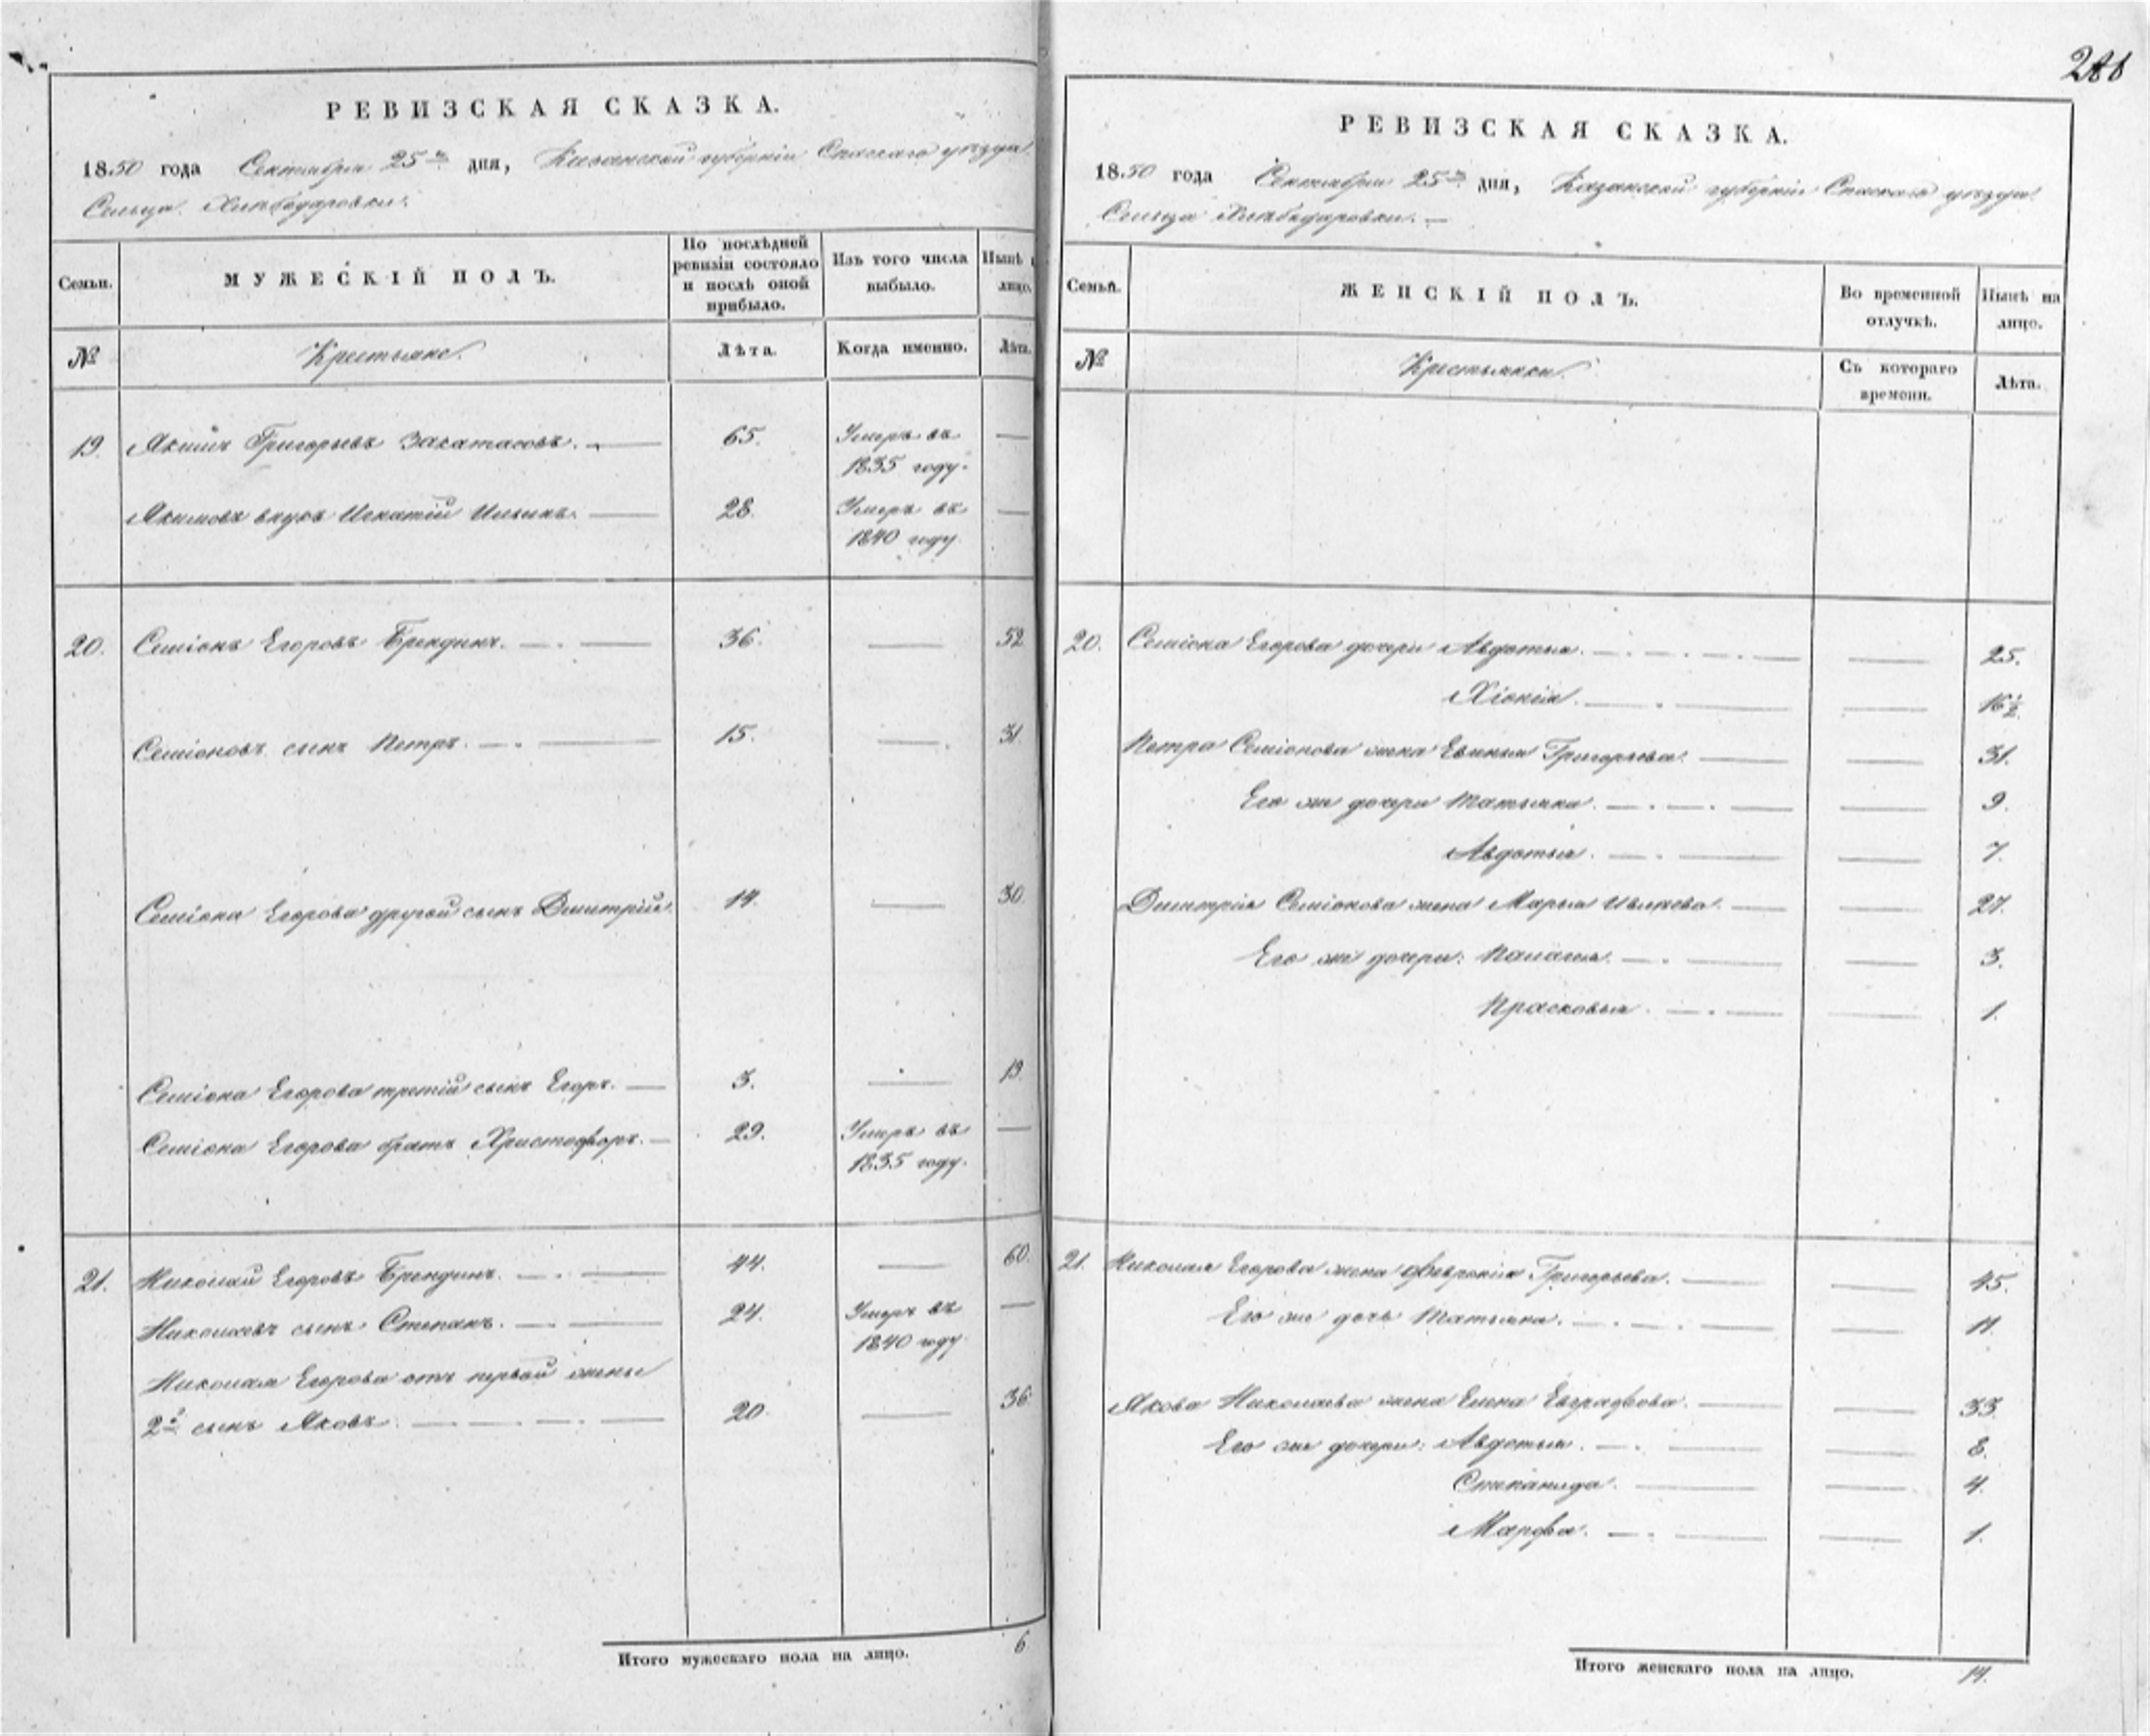 РЕВИЗСКАЯ СКАЗКА.
1850 года Сентября 25го дня, Казанской губерніи Спаскаго уѣзда
Сельца
Семьи.
МУЖЕСКІЙ ПОЛЪ.
По послѣдней ревизіи состояло и послѣ оной прибыло.
Изъ того числа выбыло.
Нынѣ лицо.
№
Крестьяне.
Лѣта.
Когда именно.
Лѣта.
19. Якимъ Григорьевъ 65. Умеръ въ 1835 году. —
Якимовъ внукъ Игнатій Ильинъ. 28. Умеръ въ 1840 году. —
20. Семіонъ Егоровъ Брендинъ. 36. — 52
Семіоновъ сынъ Петръ. 15. — 31.
Семіона Егорова другой сынъ Дмитрій. 14. — 30.
Семіона Егорова третій сынъ Егоръ. 3. — 19.
Семіона Егорова братъ Христофоръ. 29. Умеръ въ 1835 году. —
21. Николай Егоровъ Брендинъ. 44. — 60.
Николаевъ сынъ Степанъ. 24. Умеръ въ 1840 году. —
Николая Егорова отъ первой жены
2й сынъ Яковъ. 20. — 36.
Итого мужескаго пола на лицо. 6
РЕВИЗСКАЯ СКАЗКА.
1850 года Сентября 25го дня, Казанской губерніи Спаскаго уѣзда
Сельца
Семьи.
ЖЕНСКІЙ ПОЛЪ.
Во временной отлучкѣ.
Нынѣ на лицо.
№
Крестьянки.
Съ котораго времени.
Лѣта.
20. Семіона Егорова дочери Авдотья. — 25.
Хіонія. — 16½
Петра Семіонова жена Евинья Григорьева. — 31.
Его же дочери Татьяна. — 9.
Авдотья. — 7.
Дмитрія Семіонова жена Марья — 27.
Его же дочери: Палагея. — 3.
Прасковья. — 1.
21. Николая Егорова жена Февронія Григорьева. — 45.
Его же дочь Татьяна. — 11.
Якова Николаева жена Елена Евграфова. — 33.
Его же дочери: Авдотья. — 8.
Степанида. — 4.
Марфа. — 1.
Итого женскаго пола на лицо. 14.